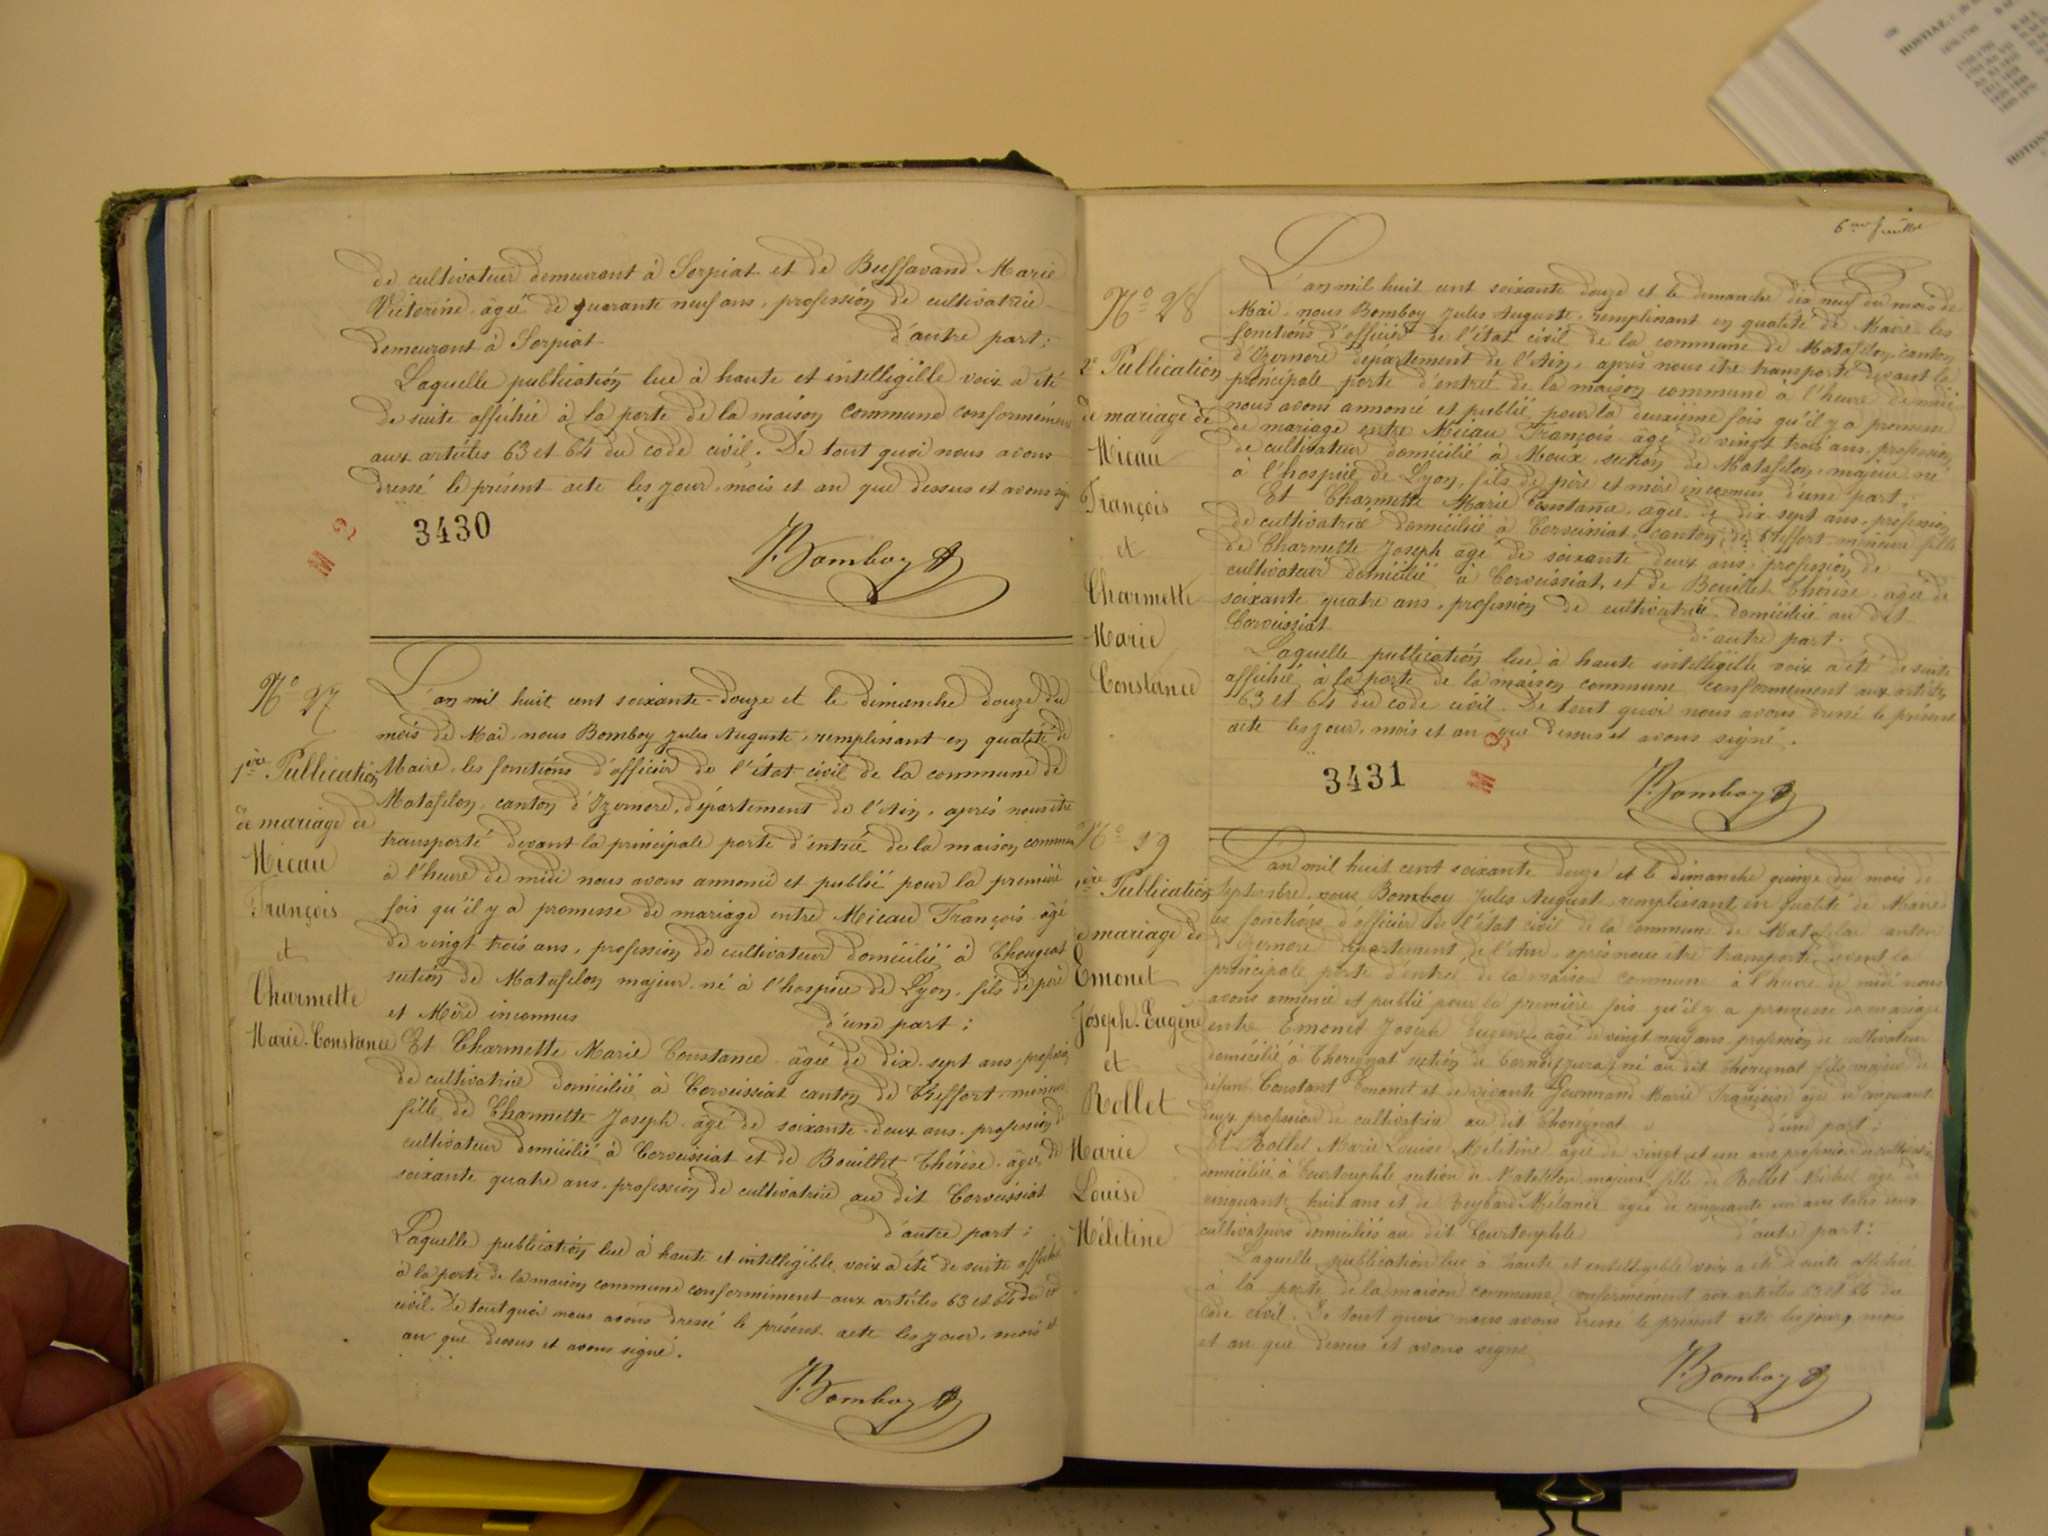 de cultivateur demeurant à Serpiat et de Buffavand Marie
Victorine âgée de quarante neuf ans, profession de cultivatrice
demeurant à Serpiat d'autre part;
Laquelle publication lue à haute et intelligible voix a été
de suite affichée à la porte de la maison commune conformément
aux articles 63 et 64 du code civil. De tout quoi nous avons
dressé le présent acte les jour, mois et an que dessus et avons
3430
M 2
Bomboy
No 27
1ère Publication
de mariage de
Micau
François
et
Charmette
Marie-Constance
L'an mil huit cent soixante-douze et le dimanche douze du
mois de Mai, nous Bomboy Jules Auguste, remplinant en qualité de
Maire, les fonctions d'officier de l'état civil de la commune de
Matafelon, canton d'Izernore, département de l'Ain, après nous être
transporté devant la principale porte d'entrée de la maison commune
à l'heure de midi nous avons annoncé et publié pour la première
fois qu'il y a promesse de mariage entre Micau François âgé
de vingt trois ans, profession de cultivateur domicilié à Chougeat
section de Matafelon majeur, né à l'hospice de Lyon, fils de père
et Mère inconnus d'une part;
Et Charmette Marie Constance âgée de dix-sept ans, profession
de cultivatrice domiciliée à Corveissiat canton de Treffort, mineure
fille de Charmette Joseph âgé de soixante-deux ans, profession de
cultivateur domicilié à Corveissiat et de Bouillet Thérèse, âgée de
soixante quatre ans, profession de cultivatrice au dit Corveissiat
d'autre part;
Laquelle publication lue à haute et intelligible voix a été de suite affichée
à la porte de la maison commune conformément aux articles 63 et 64 du
civil. De tout quoi nous avons dressé le présent acte les jour, mois et
an que dessus et avons signé.
Bomboy
6me feuillet
No 28
2e Publication
de mariage de
Micau
François
et
Charmette
Marie
Constance
L'an mil huit cent soixante douze et le dimanche dix neuf du mois de
Mai, nous Bomboy Jules Auguste, remplinant en qualité de Maire les
fonctions d'officier de l'état civil de la commune de Matafelon, canton
d'Izernore département de l'Ain, après nous être transporté devant la
principale porte d'entrée de la maison commune à l'heure de midi
nous avons annoncé et publié pour la deuxième fois qu'il y a promesse
de mariage entre Micau François âgé de vingt trois ans, profession
de cultivateur domicilié à Moux section de Matafelon, majeur, né
à l'hospice de Lyon, fils de père et mère inconnus d'une part;
Et Charmette Marie Constance, âgée de dix sept ans, profession
de cultivatrice domiciliée à Corveissiat, canton de Treffort mineure fille
de Charmette Joseph âgé de soixante deux ans, profession de
cultivateur domicilié à Corveissiat, et de Bouillet Thérèse, âgée de
soixante quatre ans, profession de cultivatrice domiciliée au dit
Corveissiat d'autre part.
Laquelle publication lue à haute intelligible voix a été de suite
affichée à la porte de la maison commune conformément aux articles
63 et 64 du code civil. De tout quoi nous avons dressé le présent
acte les jour, mois et an que dessus et avons signé.
3431
M 3
Bomboy
No 29
1ère Publication
de mariage de
Emonet
Joseph-Eugène
et
Rollet
Marie
Louise
Mélitine
L'an mil huit cent soixante douze et le dimanche quinze du mois de
Septembre, nous Bomboy Jules August, remplissant en qualité de Maire
les fonctions d'officier de l'état civil de la commune de Matafelon canton
d'Izernore département de l'Ain, après nous être transporté devant la
principale porte d'entrée de la maison commune à l'heure de midi nous
avons annoncé et publié pour la première fois qu'il y a promesse de mariage
entre Emonet Joseph Eugène âgé de vingt neuf ans profession de cultivateur
domicilié à Thoregnat section de né au dit Thoregnat fils majeur de
défunt Constant Emonet et de vivante Gourmand Marie Françoise âgée de cinquante
deux profession de cultivatrice au dit Thoregnat d'une part;
Et Rollet Marie Louise Mélitine âgée de vingt et un ans profession de cultivatrice
domiciliée à Courtouphle section de Matafelon, majeure, fille de Rollet Michel âgé de
cinquante huit ans et de Mélanie âgée de cinquante un ans tous deux
cultivateurs domiciliés au dit Courtouphle d'autre part:
Laquelle publication lue à haute et intelligible voix a été de suite affichée
à la porte de la maison commune conformément aux articles 63 et 64 du
code civil. De tout quoi nous avons dressé le présent acte les jours, mois
et an que dessus et avons signé
Bomboy